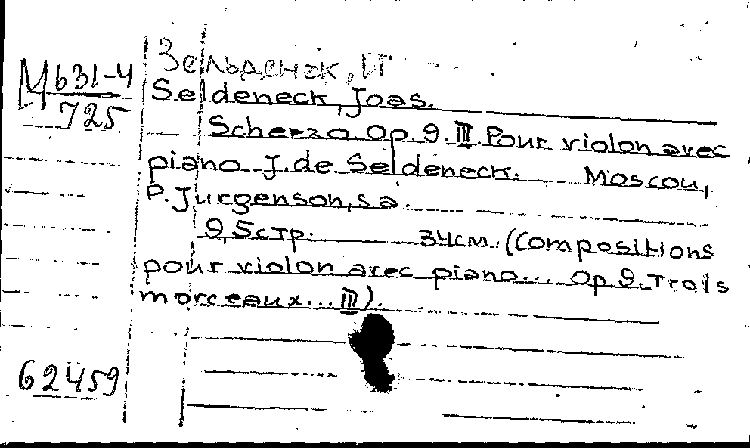 Зельденэк, И
М631-4
725
Seldeneck, Joas.
Scherzo Op 9. III. Pour violon avec
piano J. de Seldeneck. Moscou,
P. Jurgenson, s a.
9, 5 стр. 34см. (Compositions
pour violon avec piano... Op 9. Trois
morceaux... III).
62459